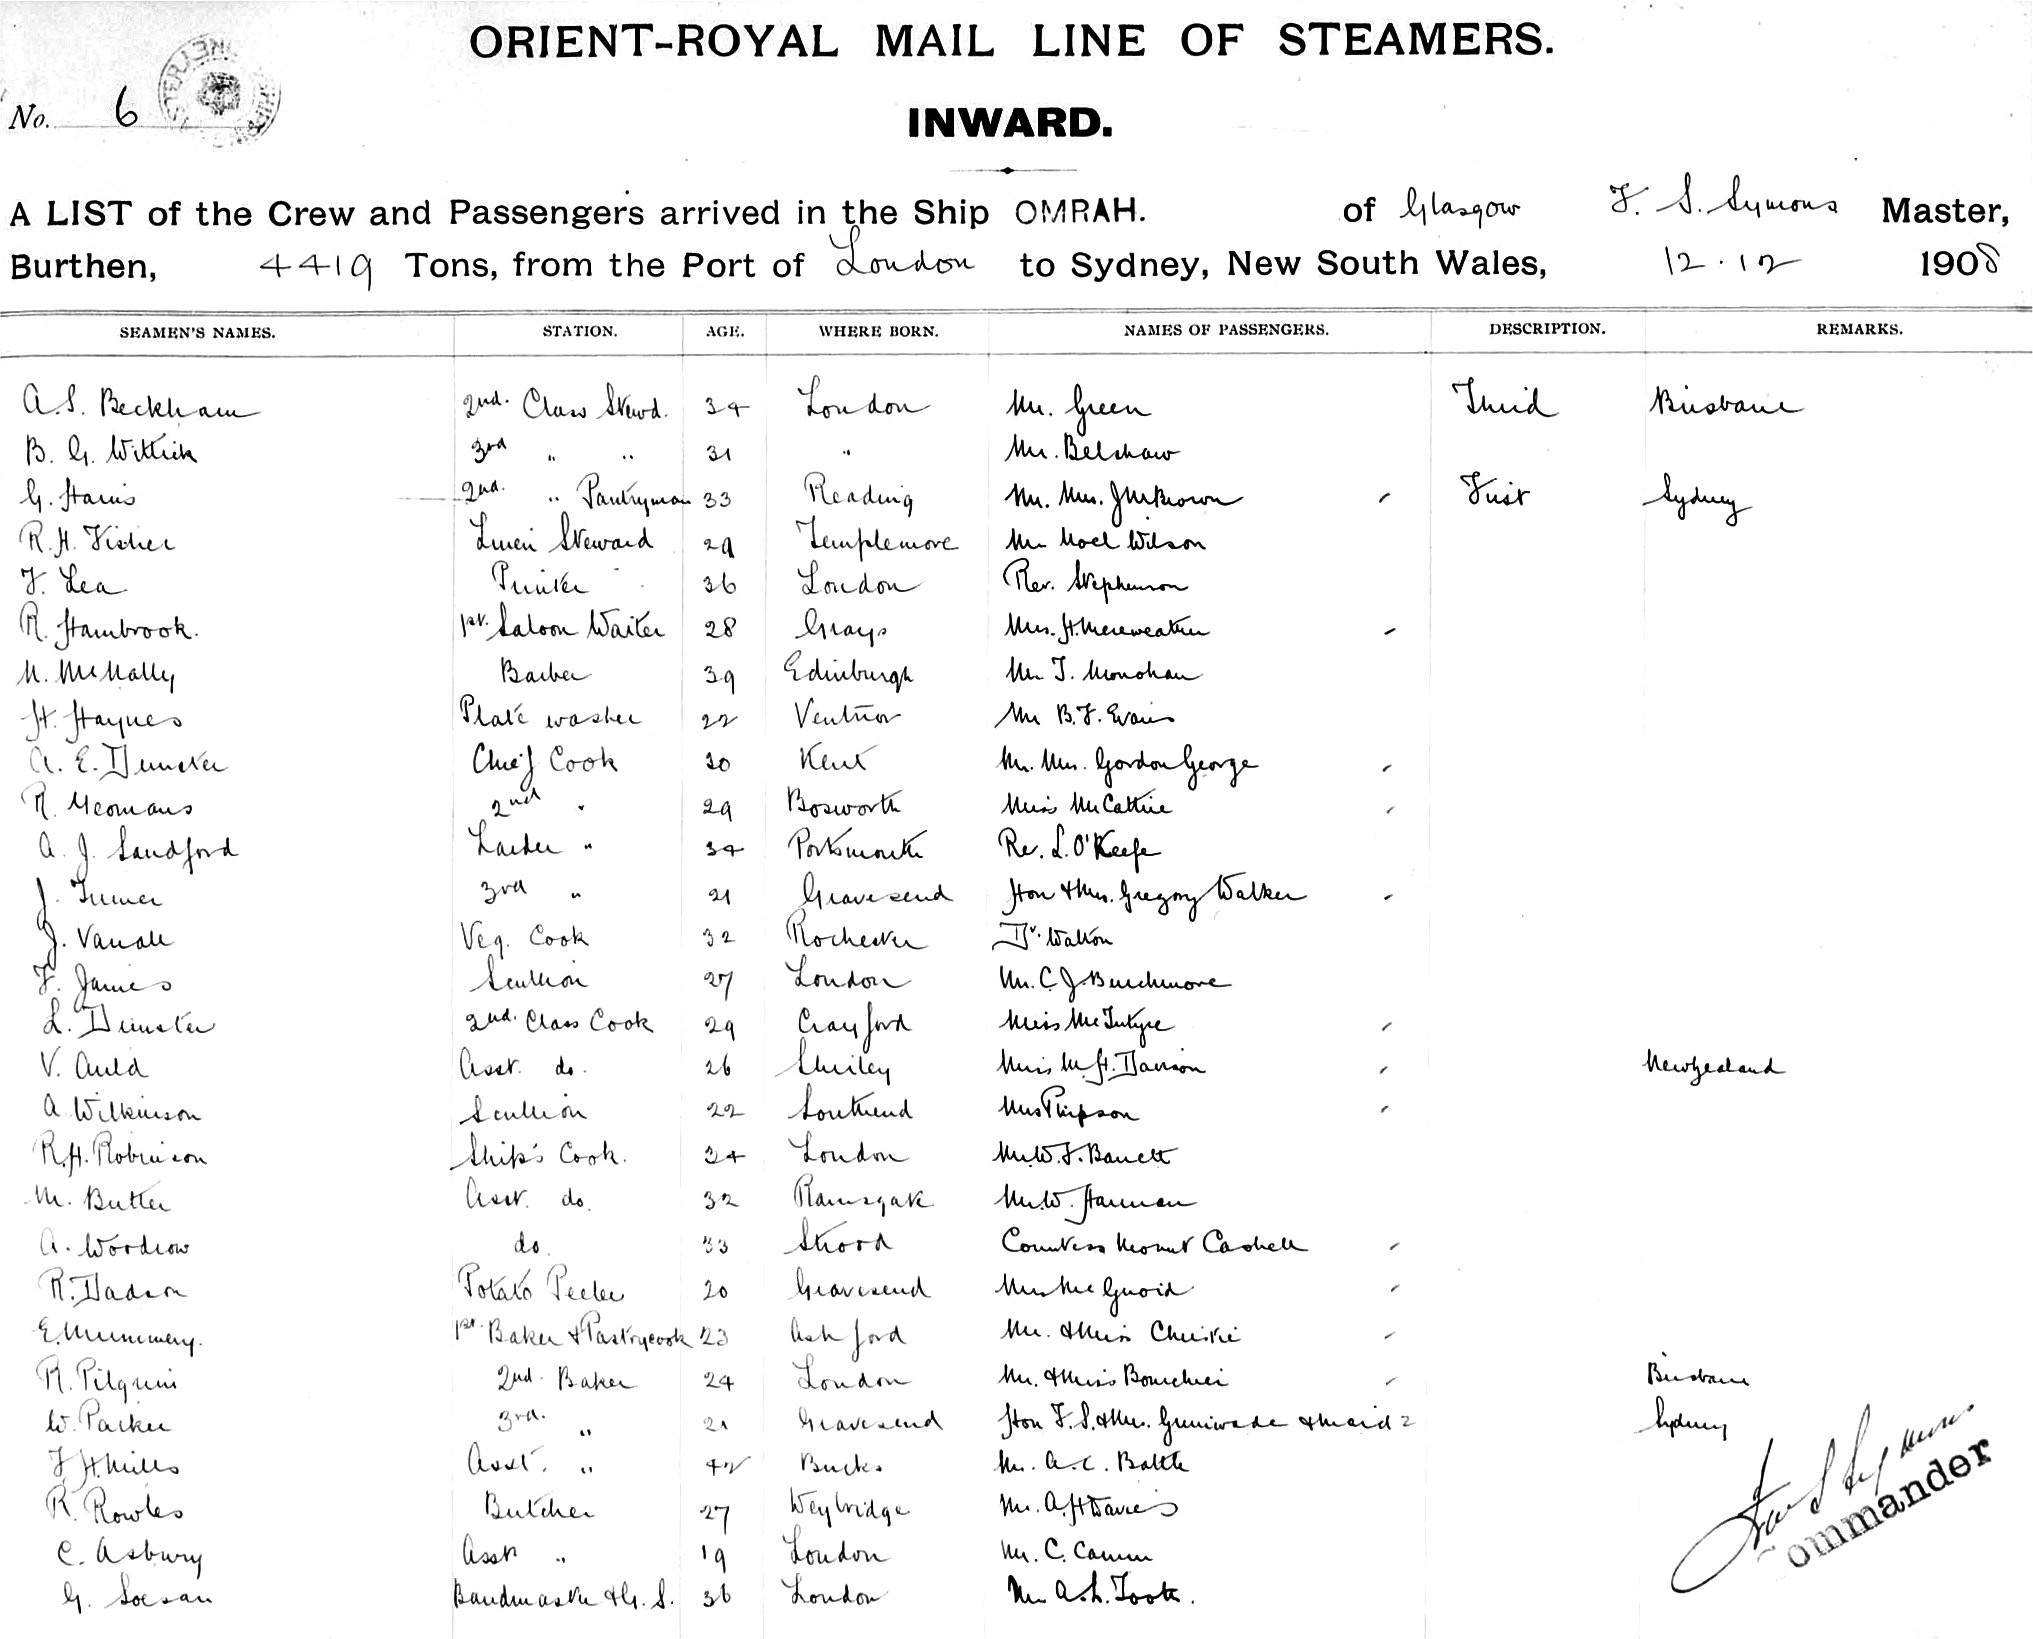 ORIENT-ROYAL MAIL LINE OF STEAMERS.
No. 6
INWARD.
A LIST of the Crew and Passengers arrived in the Ship OMRAH. of Glasgow F. S. Symons Master,
Burthen, 4419 Tons, from the Port of London to Sydney, New South Wales, 12.12 1908
SEAMEN'S NAMES. STATION. AGE. WHERE BORN. NAMES OF PASSENGERS. DESCRIPTION. REMARKS.
A. S. Beckham 2nd. Class Stewd. 34 London Mr. Green Third Brisbane
B. G. Wittick 3rd " " 31 " Mr. Belshaw
G. Harris 2nd. " Pantryman 33 Reading Mr. Mrs. J McBrown First Sydney
R. H. Fisher Linen Steward 29 Templemore Mr Noel Wilson
F. Lea Printer 36 London Rev. Stephenson
R. Hambrook. 1st. Saloon Waiter 28 Grays Mrs. H. Mereweather
M. McNally Barber 39 Edinburgh Mr T. Monohan
H. Haynes Plate washer 22 Ventnor Mr B. F. Evans
A. E. Dunster Chief Cook 30 Kent Mr. Mrs. Gordon George
R. Yeomans 2nd " 29 Bosworth Miss McCattie
A. J. Sandford Larder " 34 Portsmouth Rev. L. O'Keefe
J. Turner 3rd " 21 Gravesend Hon & Mrs. Gregory Walker
J. Veg. Cook 32 Rochester Dr. Walton
F. James Scullion 27 London Mr. C. J. Burchmore
L. Dunster 2nd. Class Cook 29 Crayford Miss McIntyre
V. Auld Asst. do. 26 Shirley Miss M. H. Davison New Zealand
A Wilkinson Scullion 22 Southend Mrs
R. H. Robinson Ship's Cook. 34 London Mr. W. F. Barrett
M. Butler Asst. do. 32 Ramsgate Mr. W. Harman
A. Woodrow do. 33 Strood Countess Mount Cashell
R. Dadson Potato Peeler 20 Gravesend Mrs McQuoid
E. Mummery. 1st. Baker & Pastrycook 23 Ashford Mr. & Miss Christie
R. Pilgrim 2nd. Baker 24 London Mr. & Miss Bourchier Brisbane
W. Parker 3rd. " 21 Gravesend Hon F. S. & Mrs. Grimwade & maid 2 Sydney
F. H. Mills Asst. " 42 Bucks Mr. A. C. Battle
R. Rowles Butcher 27 Weybridge Mr. A. H Davies
C. Asbury Asst " 19 London Mr. C. Camm
G. Soesan Bandmaster & G. S. 36 London Mr A. L. Tooth.
Symons
ommander